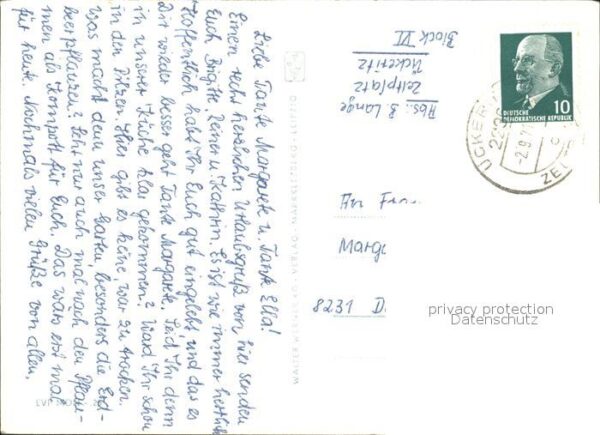 Liebe Tante Margarete u. Tante Ella!
Einen recht herzlichen Urlaubsgruß von hier senden
Euch, Brigitte, Reiner u. Kathrin. Es ist wie immer herrlich
Hoffentlich habt Ihr Euch gut eingelebt und das es
Dir wieder besser geht Tante Margarete. Seid Ihr denn
in unserer Küche klar gekommen? Ward Ihr schon
in den Pilzen. Hier gibt es keine, war zu trocken.
Was macht denn unser Garten, besonders die Erd-
beerpflanzen? Seht nur auch mal nach den Pflau-
men als Kompott für Euch. Das wars erst mal
für heute. Nochmals viele Grüße von allen.
Abs.: B. Lange
Zeltplatz
Ückeritz
Block VI
10
DEUTSCHE
DEMOKRATISCHE REPUBLIK
-2.9.7
ZEL
An Frau
Marg
8231 D
privacy protection
Datenschutz